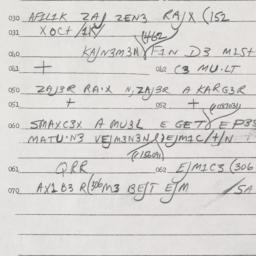 030 AFILIK ZAJ ZEN3 RAJX (152
031 XOCT/1K
(462
040 KAJN3M3N F1N D3 M1ST
041 + 042 C3 MU·LT
050 ZAJ3R RA·X N, ZAJ3R A KARG3R
051 + 052 +
060 SMAXC3X A MU3L E GET E P33
MATU·N3 VEJM3N3N EJM1C/T/N
061 QRR 062 EJM1C3 (306
070 AX1D3 R(306 M3 BEJT EJM /SA